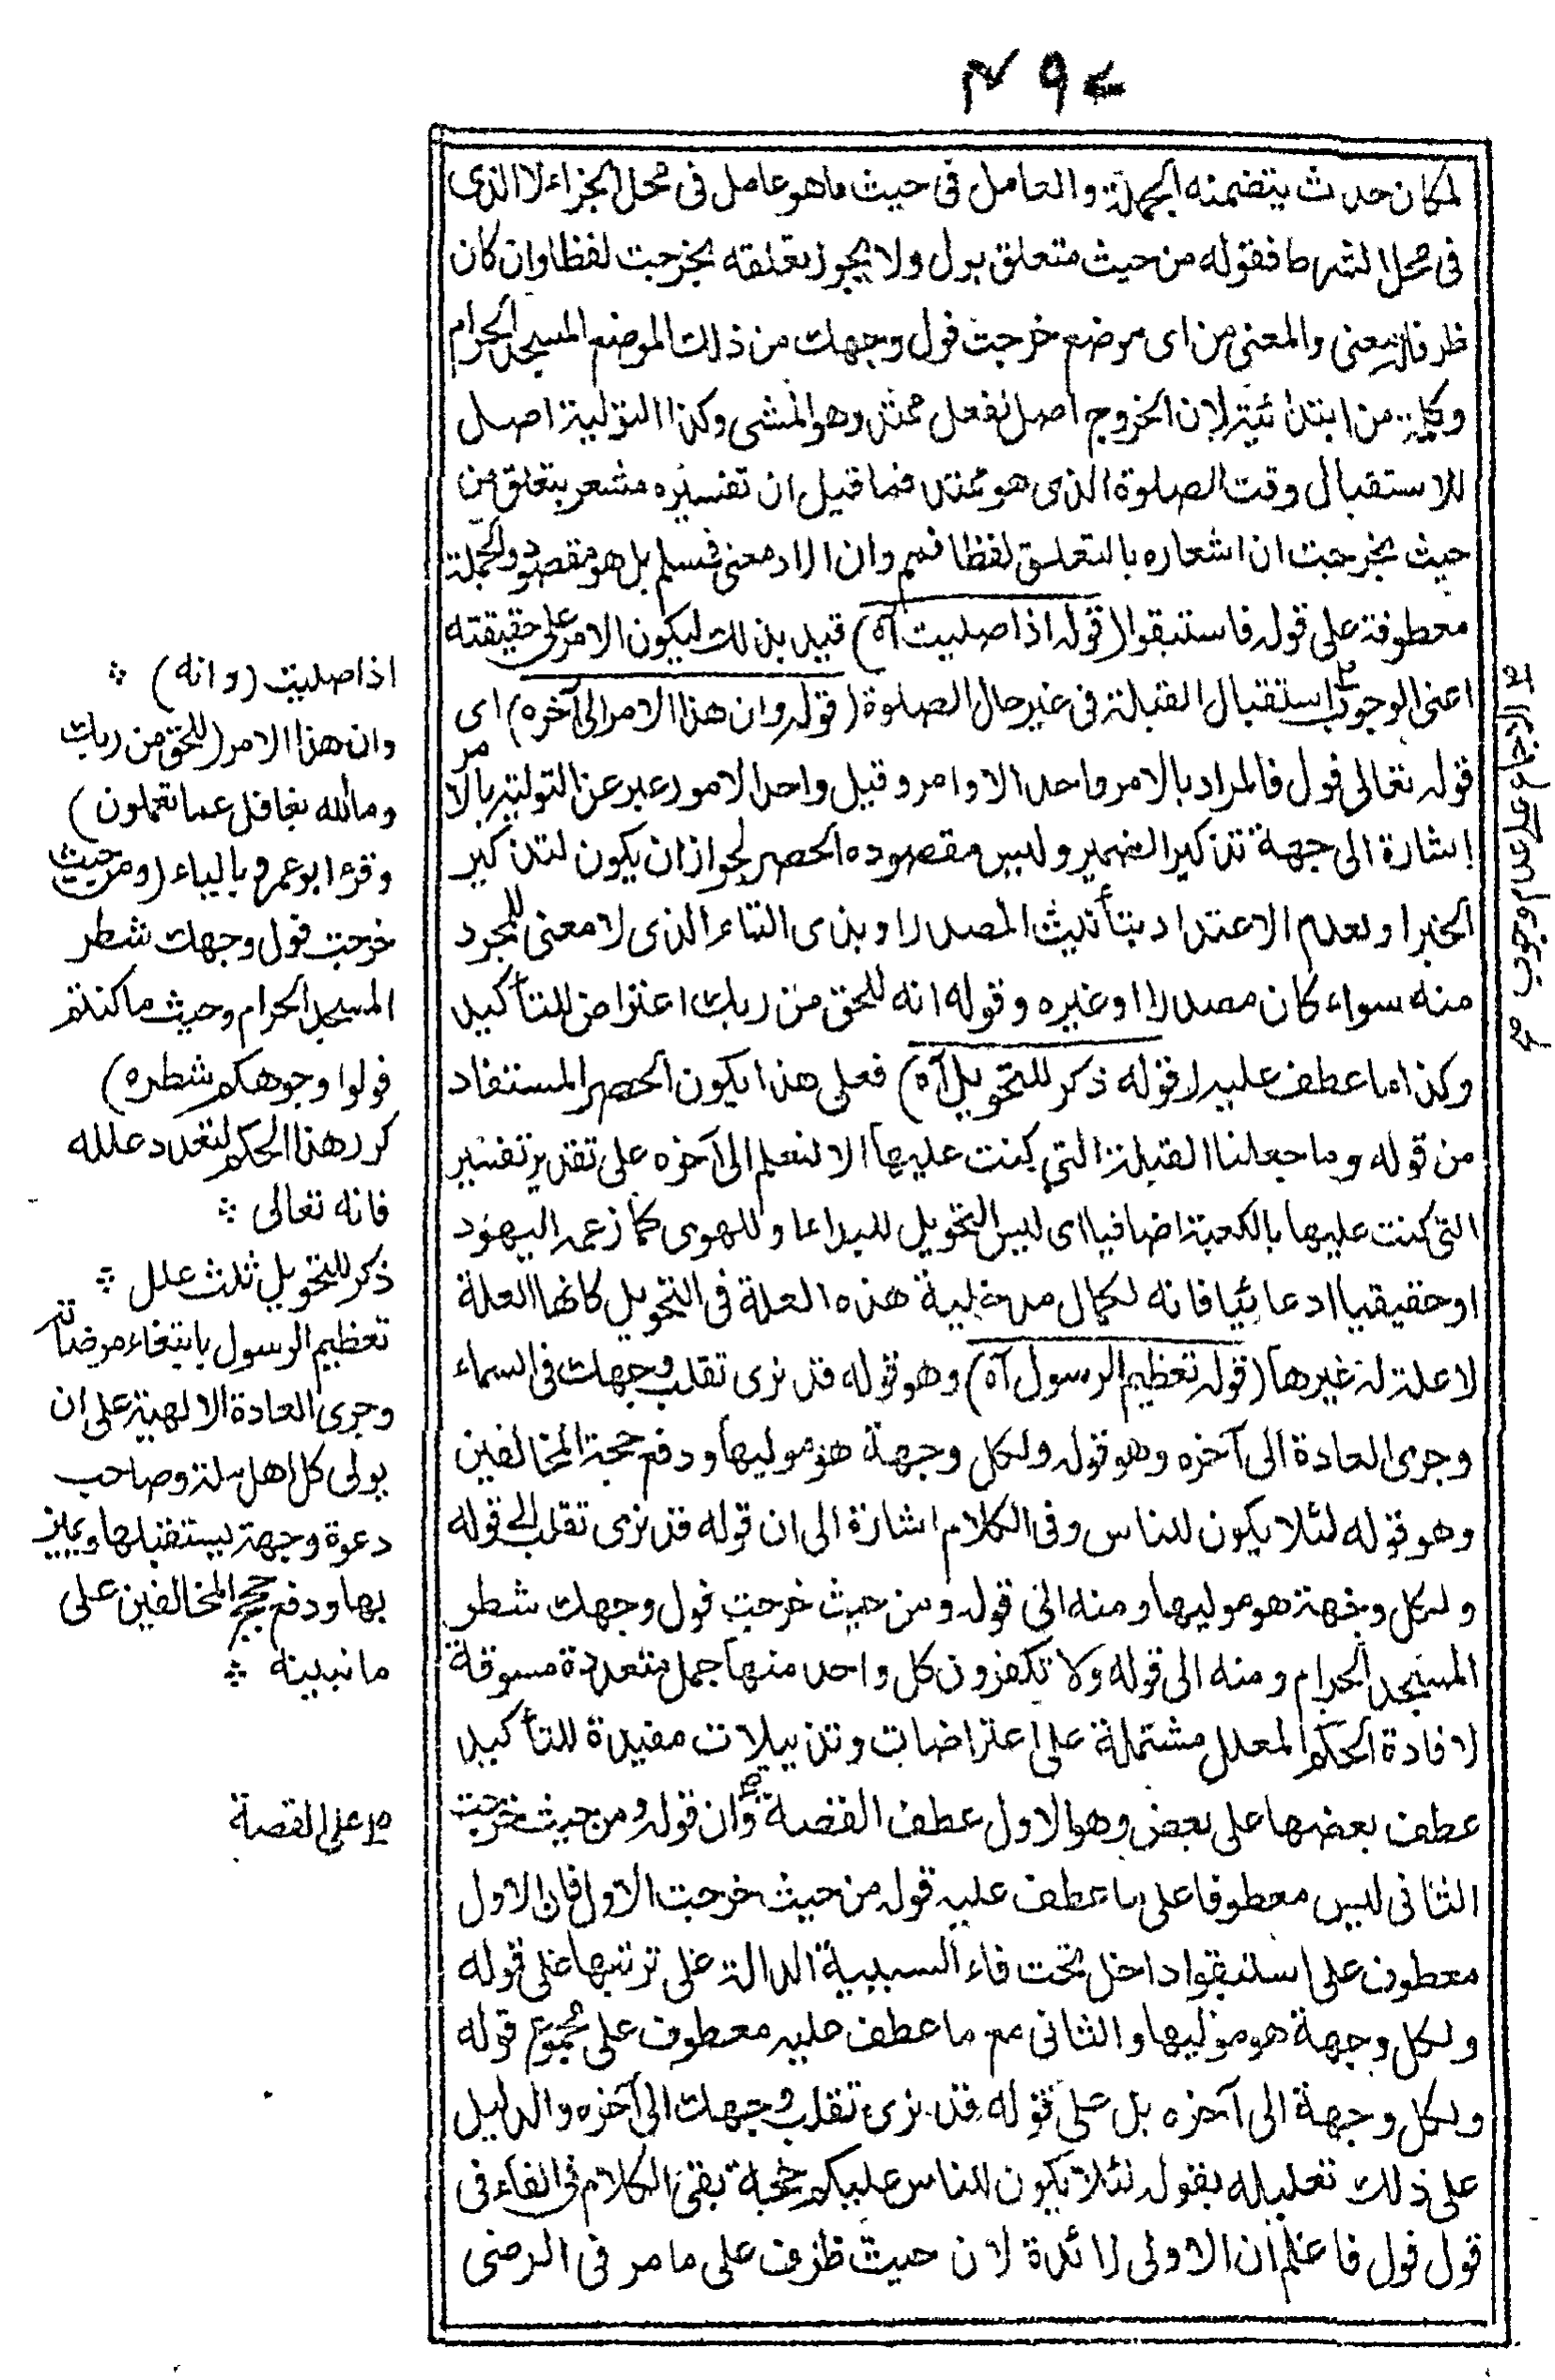 لمكان حدث يتضمنه الجملة والعامل فى حيث ما هو عامل فى محل الجزاء لا الذى
فى محل الشرط فقوله من حيث متعلق بول ولا يجوز تعلقه بخرجت لفظا وان كان
ظرفا له معنى والمعنى من اى موضع خرجت فول وجهك من ذلك الموضع المسجد الحرام
وكلمة من ابتدائية لان الخروج اصل لفعل ممتد وهو المشى وكذا التولية اصل
للاستقبال وقت الصلوة الذى هو ممتد فما قيل ان تفسيره مشعر بتعلق من
حيث بخرجت ان اشعاره بالتعلق لفظا فمم وان اراد معنى فمسلم بل هو مقصود والجملة
معطوفة على قوله فاستبقوا (قوله اذا صليت آه) قيد بذلك ليكون الامر على حقيقته
اعنى الوجوب استقبال القبلة فى غير حال الصلوة (قوله وان هذا الامر الى آخره) اى
قوله تعالى فول فالمراد بالامر واحد الاوامر وقيل واحد الامور عبر عن التولية بالامر
اشارة الى جهة تذكير الضمير وليس مقصوده الحصر لجواز ان يكون لتذكير
الخبر او لعدم الاعتداد بتأنيث المصدر او بذى التاء الذى لا معنى للمجرد
منه سواء كان مصدرا او غيره وقوله انه للحق من ربك اعتراض للتأكيد
وكذا ما عطف عليه (قوله ذكر للتحويل آه) فعلى هذا يكون الحصر المستفاد
من قوله وما جعلنا القبلة التى كنت عليها الا لنعلم الى آخره على تقدير تفسير
التى كنت عليها بالكعبة اضافيا اى ليس التحويل للبداء او للهوى كما زعمه اليهود
او حقيقيا ادعائيا فانه لكمال مدخلية هذه العلة فى التحويل كانها العلة
لا علة له غيرها (قوله تعظيم الرسول آه) وهو قوله قد نرى تقلب وجهك فى السماء
وجرى العادة الى آخره وهو قوله ولكل وجهة هو موليها ودفع حجة المخالفين
وهو قوله لئلا يكون للناس وفى الكلام اشارة الى ان قوله قد نرى تقلب الى قوله
ولكل وجهة هو موليها ومنه الى قوله ومن حيث خرجت فول وجهك شطر
المسجد الحرام ومنه الى قوله ولا تكفرون كل واحد منها جمل متعددة مسوقة
لافادة الحكم المعلل مشتملة على اعتراضات وتذييلات مفيدة للتأكيد
عطف بعضها على بعض وهو الاول عطف القصة وان قوله ومن حيث خرجت
الثانى ليس معطوفا على ما عطف عليه قوله من حيث خرجت الاول فان الاول
معطوف على استبقوا داخل تحت فاء السببية الدالة على ترتبها على قوله
ولكل وجهة هو موليها والثانى مع ما عطف عليه معطوف على مجموع قوله
ولكل وجهة الى آخره بل على قوله قد نرى تقلب وجهك الى آخره والدليل
على ذلك تعليله بقوله لئلا يكون للناس عليكم حجة بقى الكلام فى الفاء فى
قول فول فاعلم ان الاولى زائدة لان حيث ظرف على ما مر فى الرضى
اذا صليت (وانه) ❖
وان هذا الامر (للحق من ربك
وما الله بغافل عما تعملون)
وقرء ابو عمرو بالياء (ومن حيث
خرجت فول وجهك شطر
المسجد الحرام وحيث ما كنتم
فولوا وجوهكم شطره)
كرر هذا الحكم لتعدد علله
فانه تعالى ❖
ذكر للتحويل ثلث علل ❖
تعظيم الرسول بابتغاء مرضاته
وجرى العادة الالهية على ان
يولى كل اهل ملة وصاحب
دعوة وجهة يستقبلها ويميز
بها ودفع حجج المخالفين على
ما نبينه ❖
على القصة